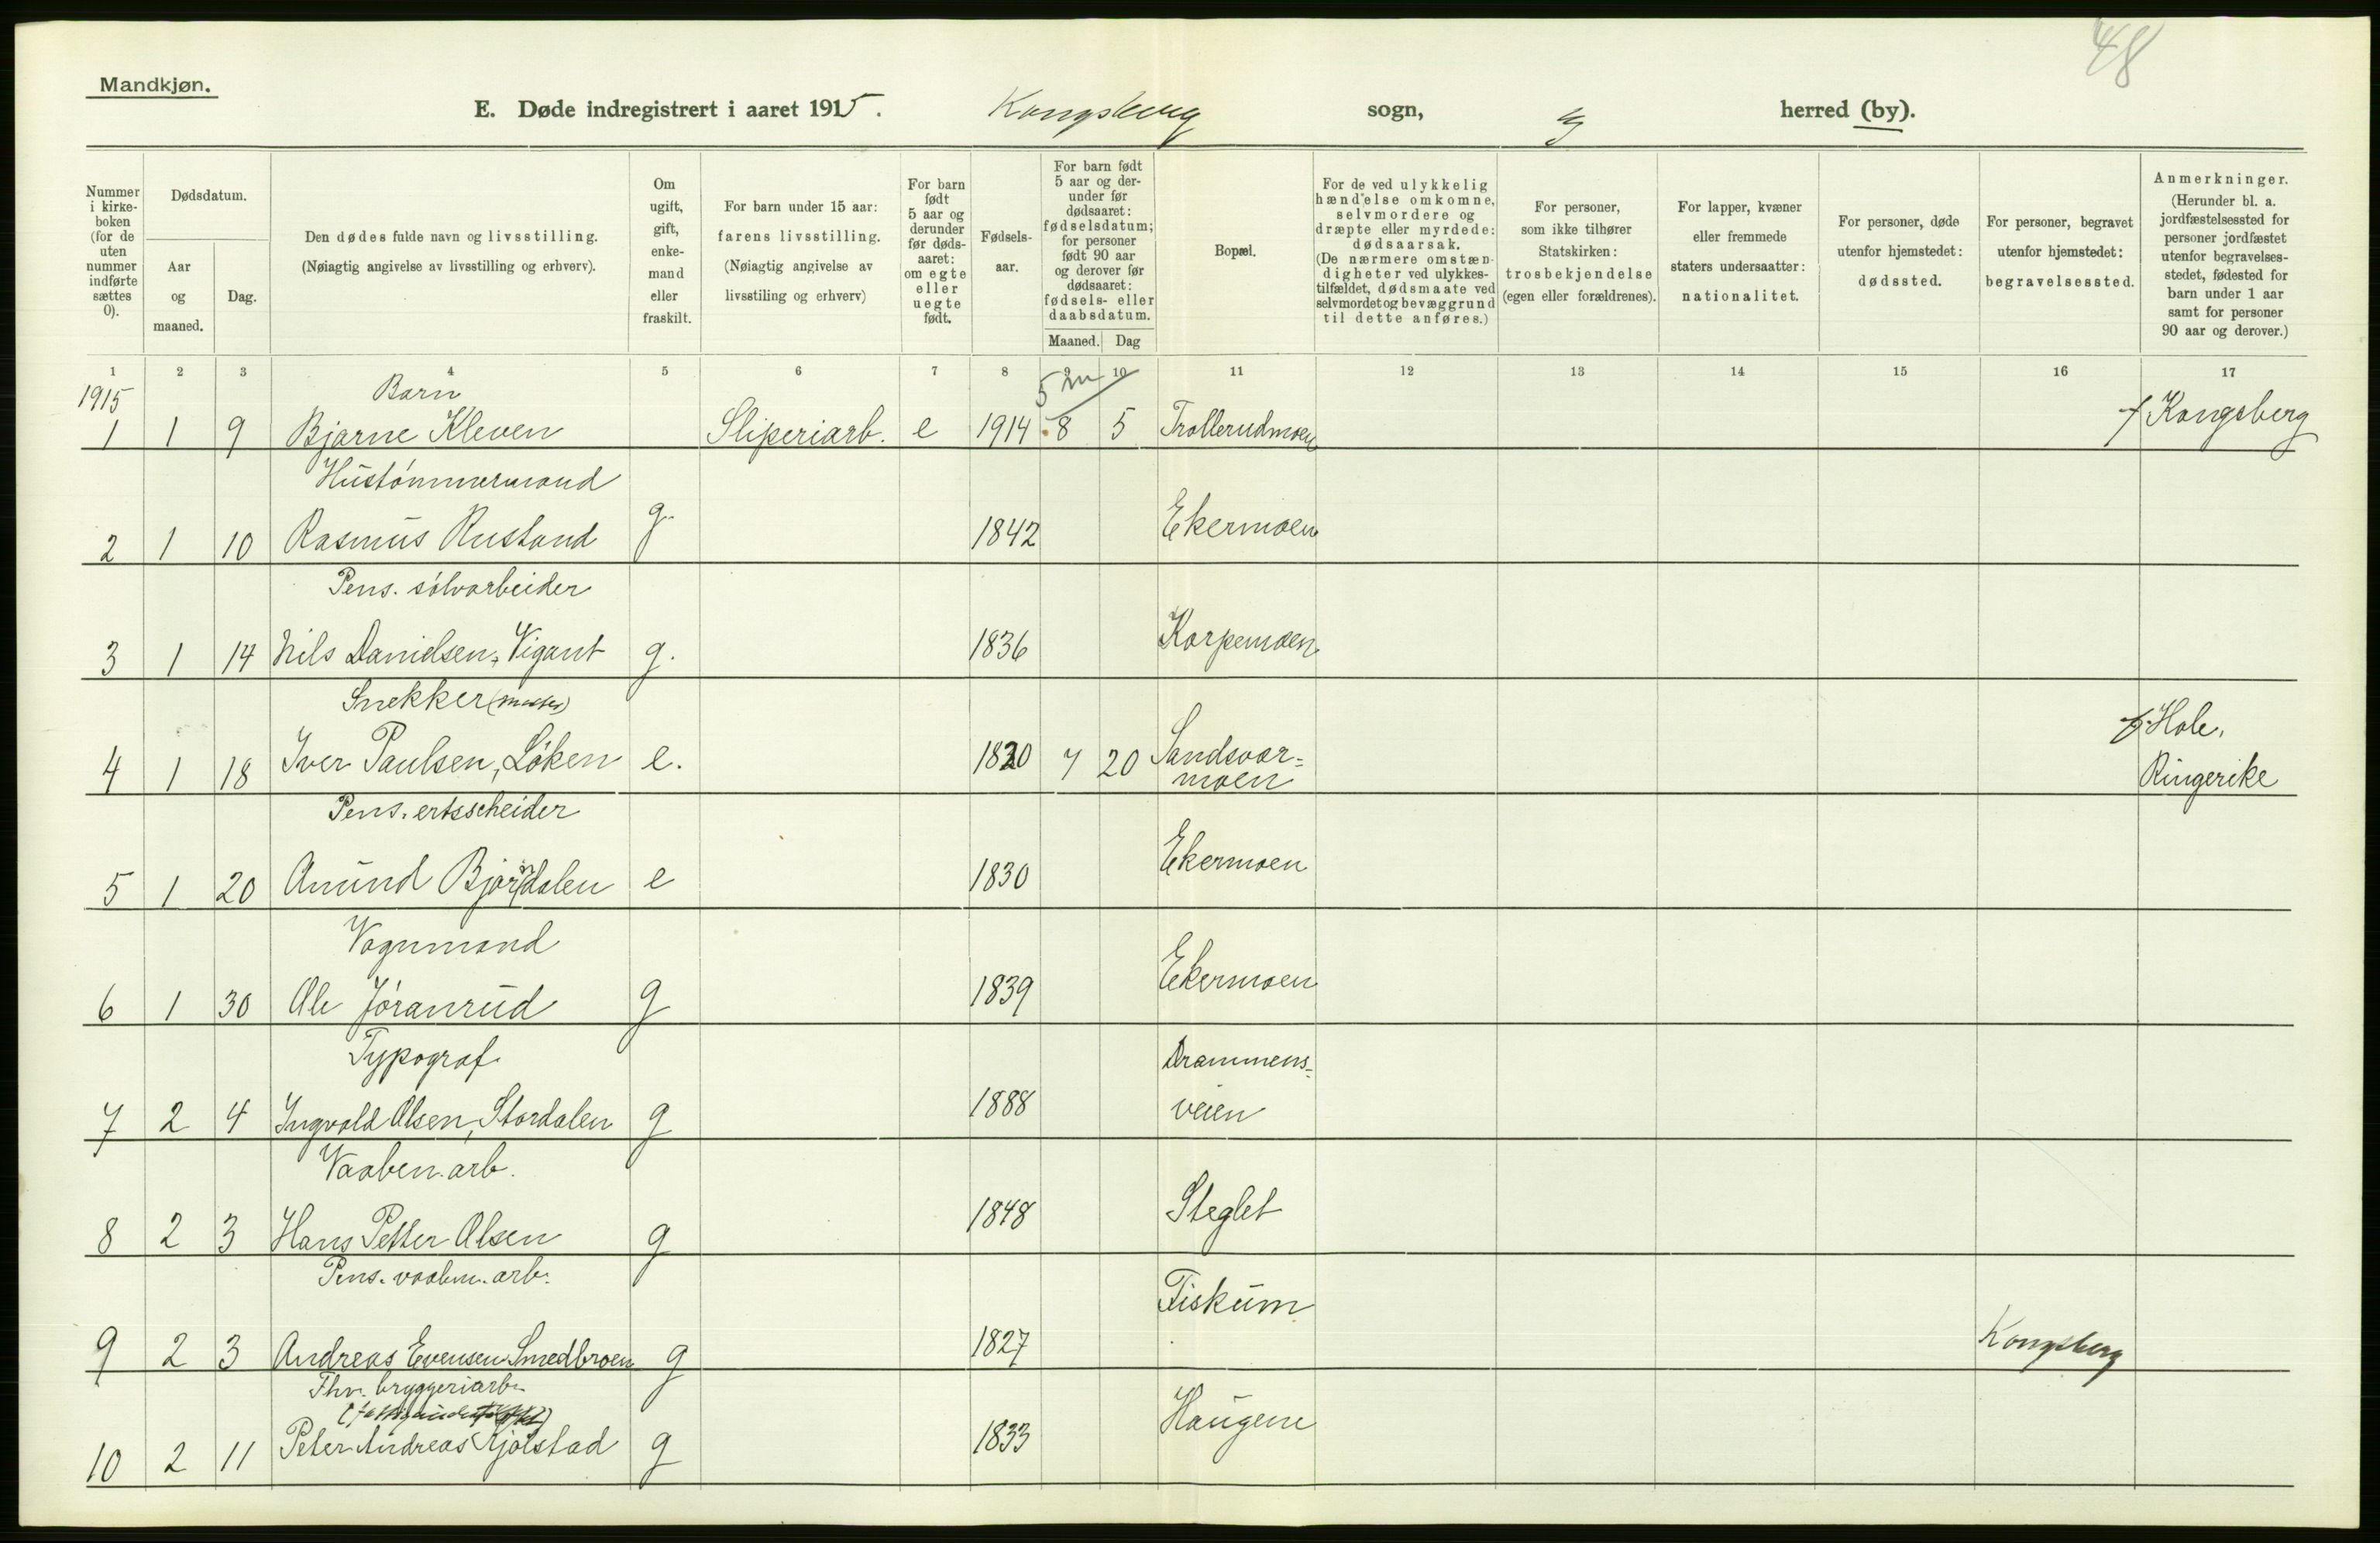 48
Mandkjøn.
E. Døde indregistrert i aaret 1915. Kongsberg sogn, herred (by).
Nummer i kirke-boken (for de uten nummer indførte sættes 0).
Dødsdatum.
Aar og maaned.
Dag.
Den dødes fulde navn og livsstilling.
(Nøiagtig angivelse av livsstilling og erhverv).
Om ugift, gift, enke-mand eller fraskilt.
For barn under 15 aar: farens livsstilling. (Nøiagtig angivelse av livsstiling og erhverv)
For barn født 5 aar og derunder før døds-aaret: om egte eller uegte født.
Fødsels-aar.
For barn født 5 aar og der-under før dødsaaret: fødselsdatum; for personer født 90 aar og derover før dødsaaret: fødsels- eller daabsdatum.
Maaned. Dag
Bopæl.
For de ved ulykkelig hændelse omkomne, selvmordere og dræpte eller myrdede: dødsaarsak. (De nærmere omstæn-digheter ved ulykkes-tilfældet, dødsmaate ved selvmordet og bevæggrund til dette anføres.)
For personer, som ikke tilhører Statskirken: trosbekjendelse (egen eller forældrenes).
For lapper, kvæner eller fremmede staters undersaatter: nationalitet.
For personer, døde utenfor hjemstedet: dødssted.
For personer, begravet utenfor hjemstedet: begravelsessted.
Anmerkninger. (Herunder bl. a. jordfæstelsessted for personer jordfæstet utenfor begravelses-stedet, fødested for barn under 1 aar samt for personer 90 aar og derover.)
1 2 3 4 5 6 7 8 9 10 11 12 13 14 15 16 17
1915 Barn 5 m
1 1 9 Bjarne Kleven Sliperiarb. e 1914 8 5 Trollerudmoen Kongsberg
Hustømmermand
2 1 10 Rasmus Rustand g. 1842 Ekermoen
Pens. sølvarbeider
3 1 14 Nils Danielsen, Vigant g. 1836 Korpemoen
Snekker (mester)
4 1 18 Iver Paulsen, Løken e. 1820 7 20 Sandsvær=moen Hole, Ringerike
Pens. ertsscheider
5 1 20 Amund Bjørndalen e 1830 Ekermoen
Vognmand
6 1 30 Ole Jøranrud g 1839 Ekermoen
Typograf
7 2 4 Ingvald Olsen, Stordalen g 1888 Drammens=veien
Vaaben.arb.
8 2 3 Hans Petter Olsen g 1848 Steglet
Pens. vaaben. arb.
9 2 3 Andreas Evensen Smedbroen g 1827 Fiskum Kongsberg
Fhv. bryggeriarb.
10 2 11 Peter Andreas Kjølstad g 1833 Haugene